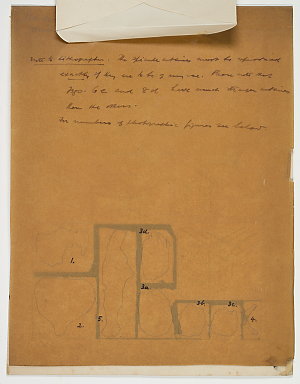 Note to Lithographer. The spicule outlines must be reproduced
exactly if they are to be of any use. Please note that
Figs. 6c and 8d have much stronger outlines
than the others.
For numbers of photographic figures see below.
3d.
1.
3a.
3b. 3c.
2. 5. 4.